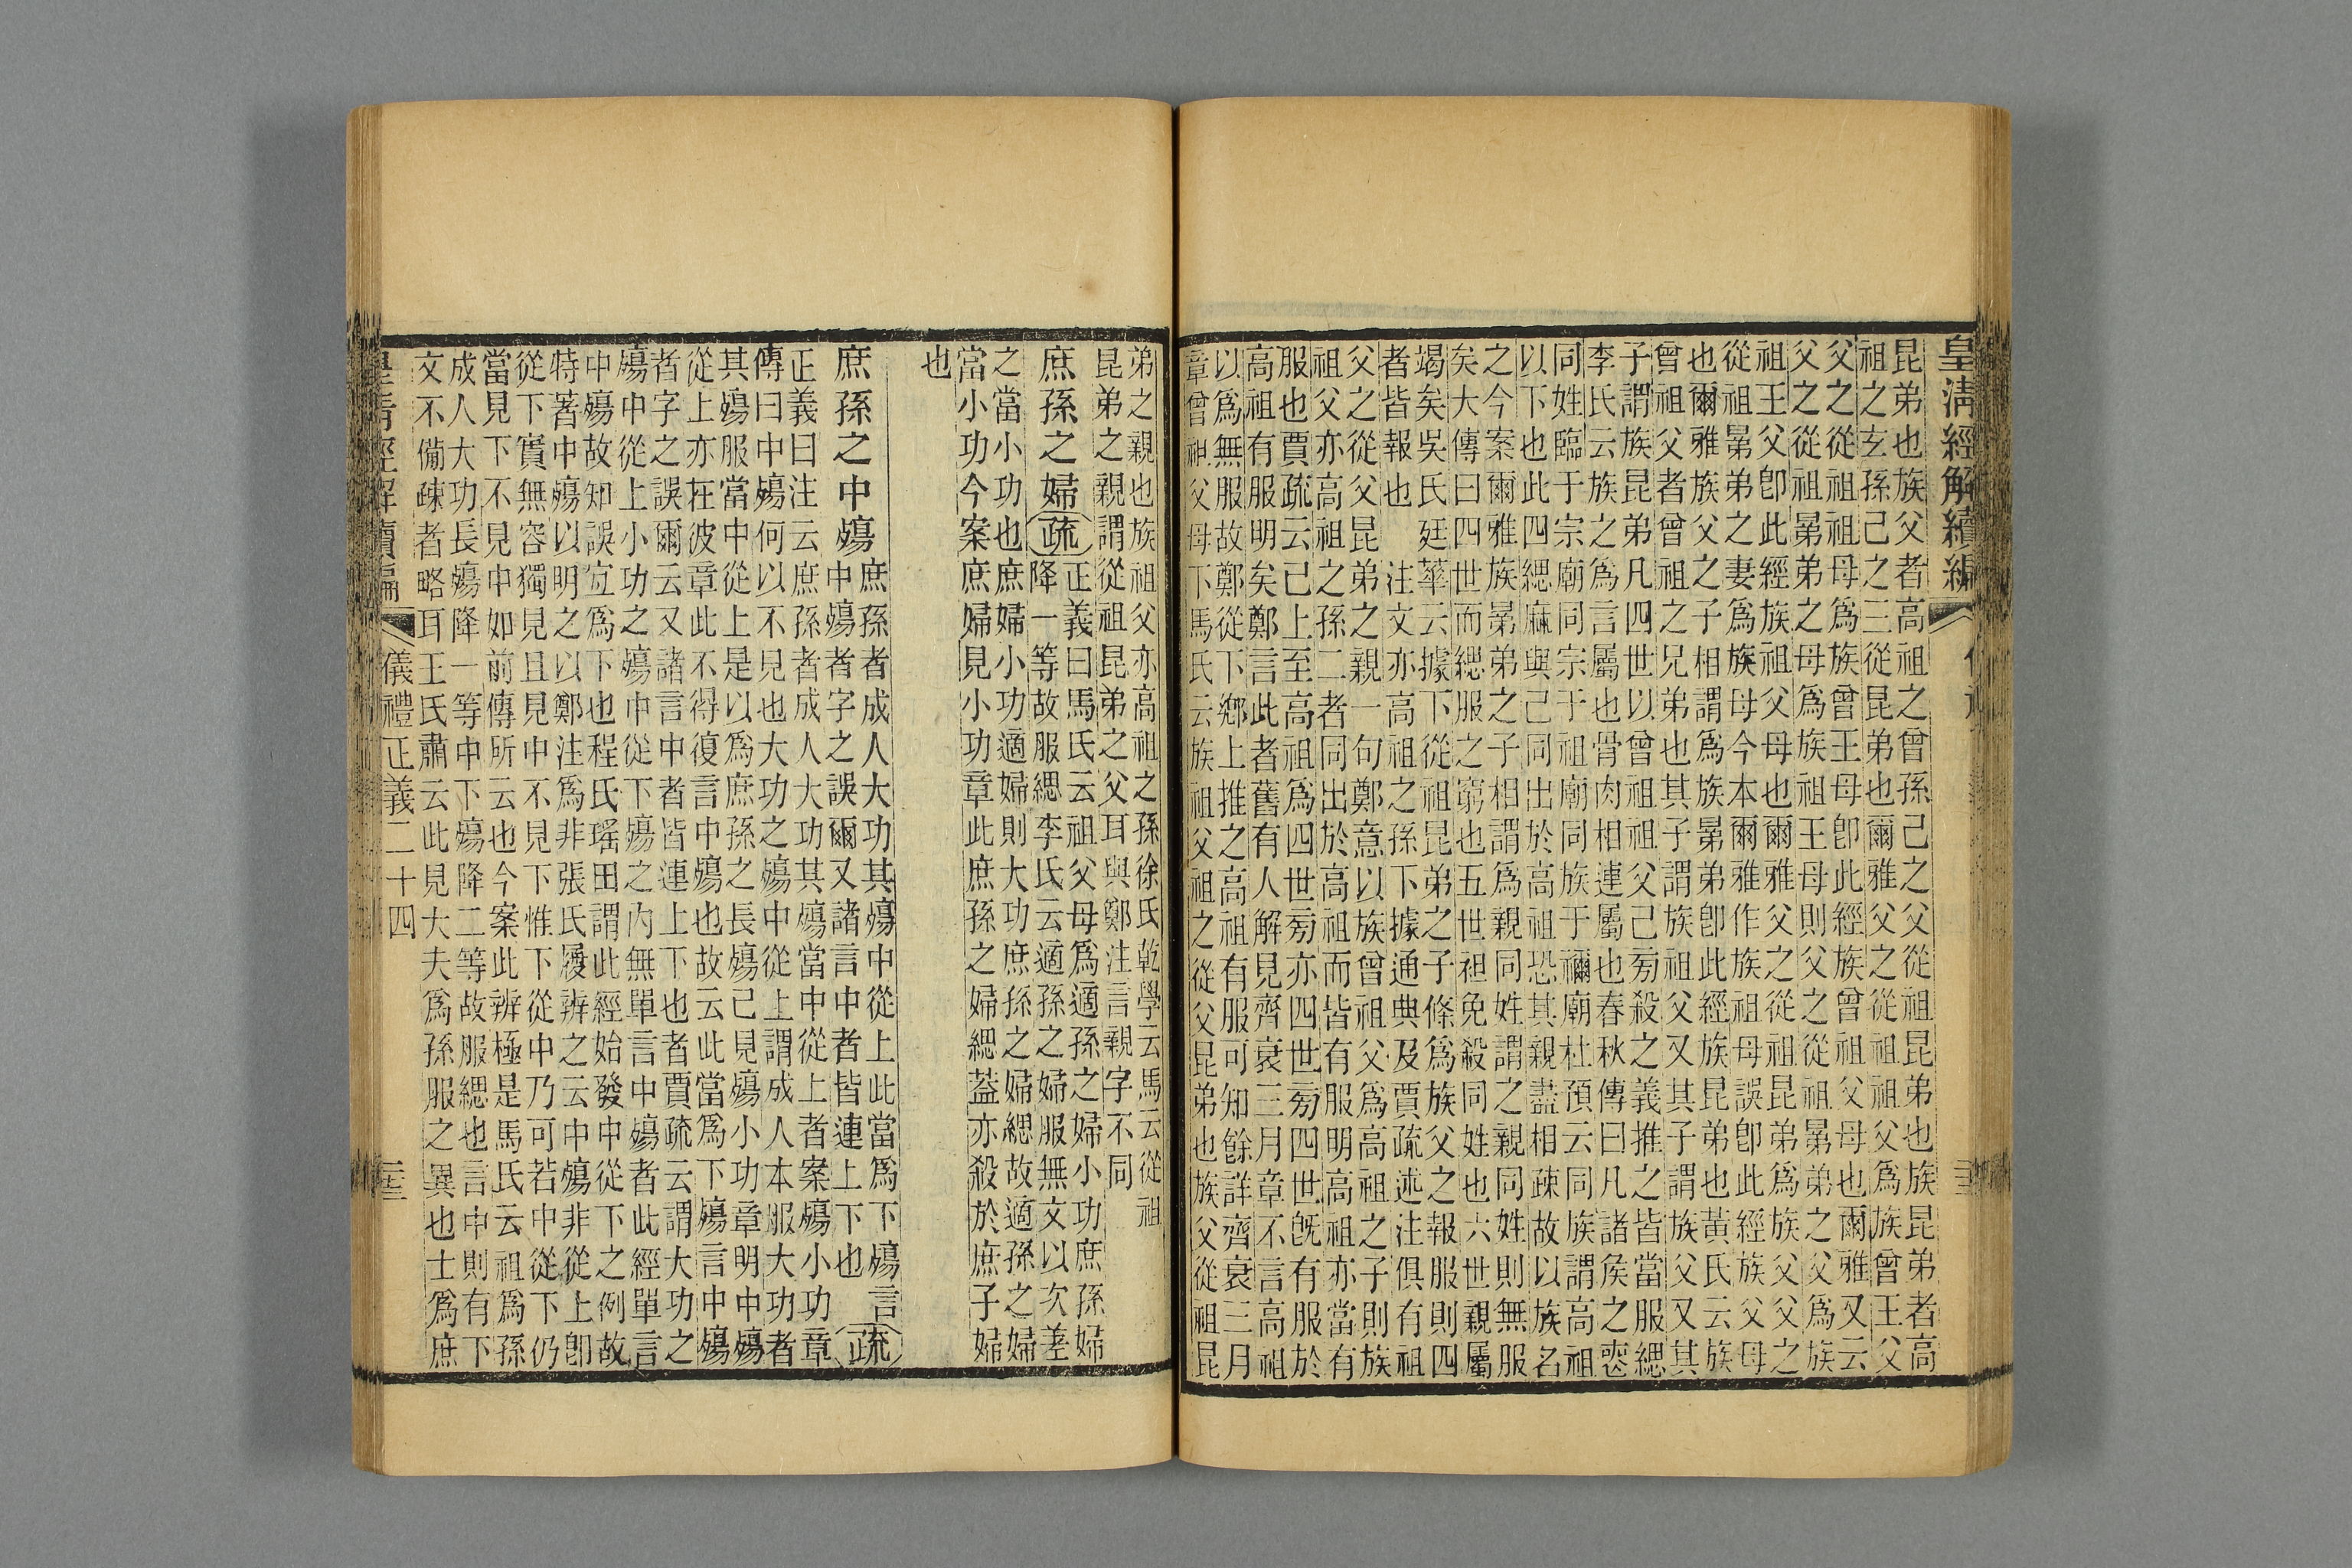 皇清經解續編
昆弟也族父者高祖之曾孫己之父從祖昆弟也族昆弟者高
祖之玄孫己之三從昆弟也爾雅父之從祖祖父爲族曾王父
父之從祖祖母爲族曾王母卽此經族曾祖父母也爾雅又云
父之從祖晜弟之母爲族祖王母則父之從祖晜弟之父爲族
祖王父卽此經族祖父母也爾雅父之從祖昆弟爲族父父之
從祖晜弟之妻爲族母今本爾雅作族祖母誤卽此經族父母
也爾雅族父之子相謂爲族晜弟卽此經族昆弟也黃氏云族
曾祖父者曾祖之兄弟也其子謂族祖父又其子謂族父又其
子謂族昆弟凡四世以曾祖祖父己旁殺之義推之皆當服緦
李氏云族之爲言屬也骨肉相連屬也春秋傳曰凡諸侯之喪
同姓臨于宗廟同宗于祖廟同族于禰廟杜預云同族謂高祖
以下也此四緦麻與己同出於高祖恐其親盡相疎故以族名
之今案爾雅族晜弟之子相謂爲親同姓謂之親同姓則無服
矣大傳曰四世而緦服之窮也五世袒免殺同姓也六世親屬
竭矣吳氏廷華云據下從祖昆弟之子條爲族父之報服則四
者皆報也　注文亦高祖之孫下據通典及賈疏述注俱有祖
父之從父昆弟之親一句鄭意以族曾祖父爲高祖之子則族
祖父亦高祖之孫二者同出於高祖而皆有服明高祖亦當有
服也賈疏云己上至高祖爲四世旁亦四世旁四世旣有服於
高祖有服明矣鄭言此者舊有人解見齊衰三月章不言高祖
以爲無服故鄭從下鄉上推之高祖有服可知餘詳齊衰三月
章曾祖父母下馬氏云族祖父祖之從父昆弟也族父從祖昆
弟之親也族祖父亦高祖之孫徐氏乾學云馬云從祖
昆弟之親謂從祖昆弟之父耳與鄭注言親字不同
庶孫之婦疏
正義曰馬氏云祖父母爲適孫之婦小功庶孫婦
降一等故服緦李氏云適孫之婦服無文以次差
之當小功也庶婦小功適婦則大功庶孫之婦緦故適孫之婦
當小功今案庶婦見小功章此庶孫之婦緦蓋亦殺於庶子婦
也
庶孫之中殤
庶孫者成人大功其殤中從上此當爲下殤言
中殤者字之誤爾又諸言中者皆連上下也
疏
正義曰注云庶孫者成人大功其殤當中從上者案殤小功章
傳曰中殤何以不見也大功之殤中從上謂成人本服大功者
其殤服當中從上是以爲庶孫之長殤己見殤小功章明中殤
從上亦在彼章此不得復言中殤也故云此當爲下殤言中殤
者字之誤爾云又諸言中者皆連上下也者賈疏云謂大功之
殤中從上小功之殤中從下殤之內無單言中殤者此經單言
中殤故知誤宜爲下也程氏瑤田謂此經始發中從下之例故
特著中殤以明之以鄭注爲非張氏履辨之云中殤非從上卽
從下實無容獨見且見中不見下惟下從中乃可若中從下仍
當見下不見中如前傳所云也今案此辨極是馬氏云祖爲孫
成人大功長殤降一等中下殤降二等故服緦也言中則有下
文不備疎者略耳王氏肅云此見大夫爲孫服之異也士爲庶
皇清經解續編　儀禮正義二十四